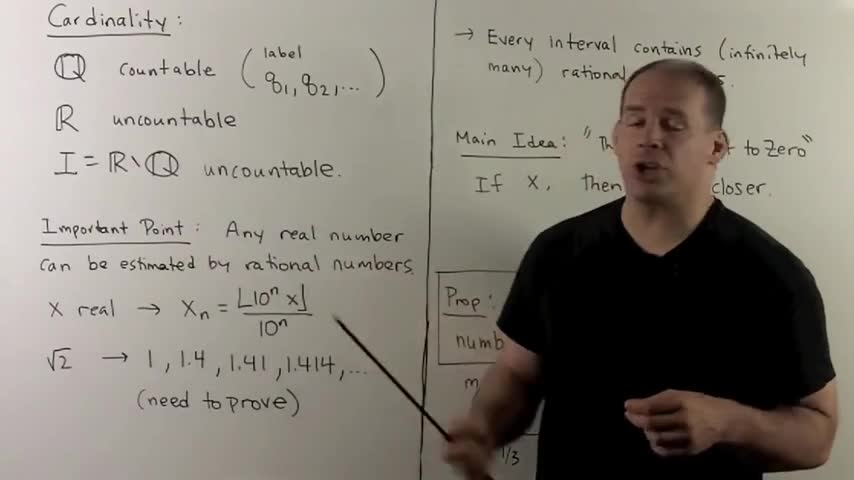 Cardinality:
ℚ countable ( label q₁, q₂, ... )
ℝ uncountable
I = ℝ\ℚ uncountable.
Important Point: Any real number
can be estimated by rational numbers.
x real → xₙ = ⌊10ⁿ x⌋ / 10ⁿ
√2 → 1, 1.4, 1.41, 1.414, ...
(need to prove)
→ Every interval contains (infinitely
many) rational
Main Idea: " to Zero"
If x, then closer.
Prop:
1/3